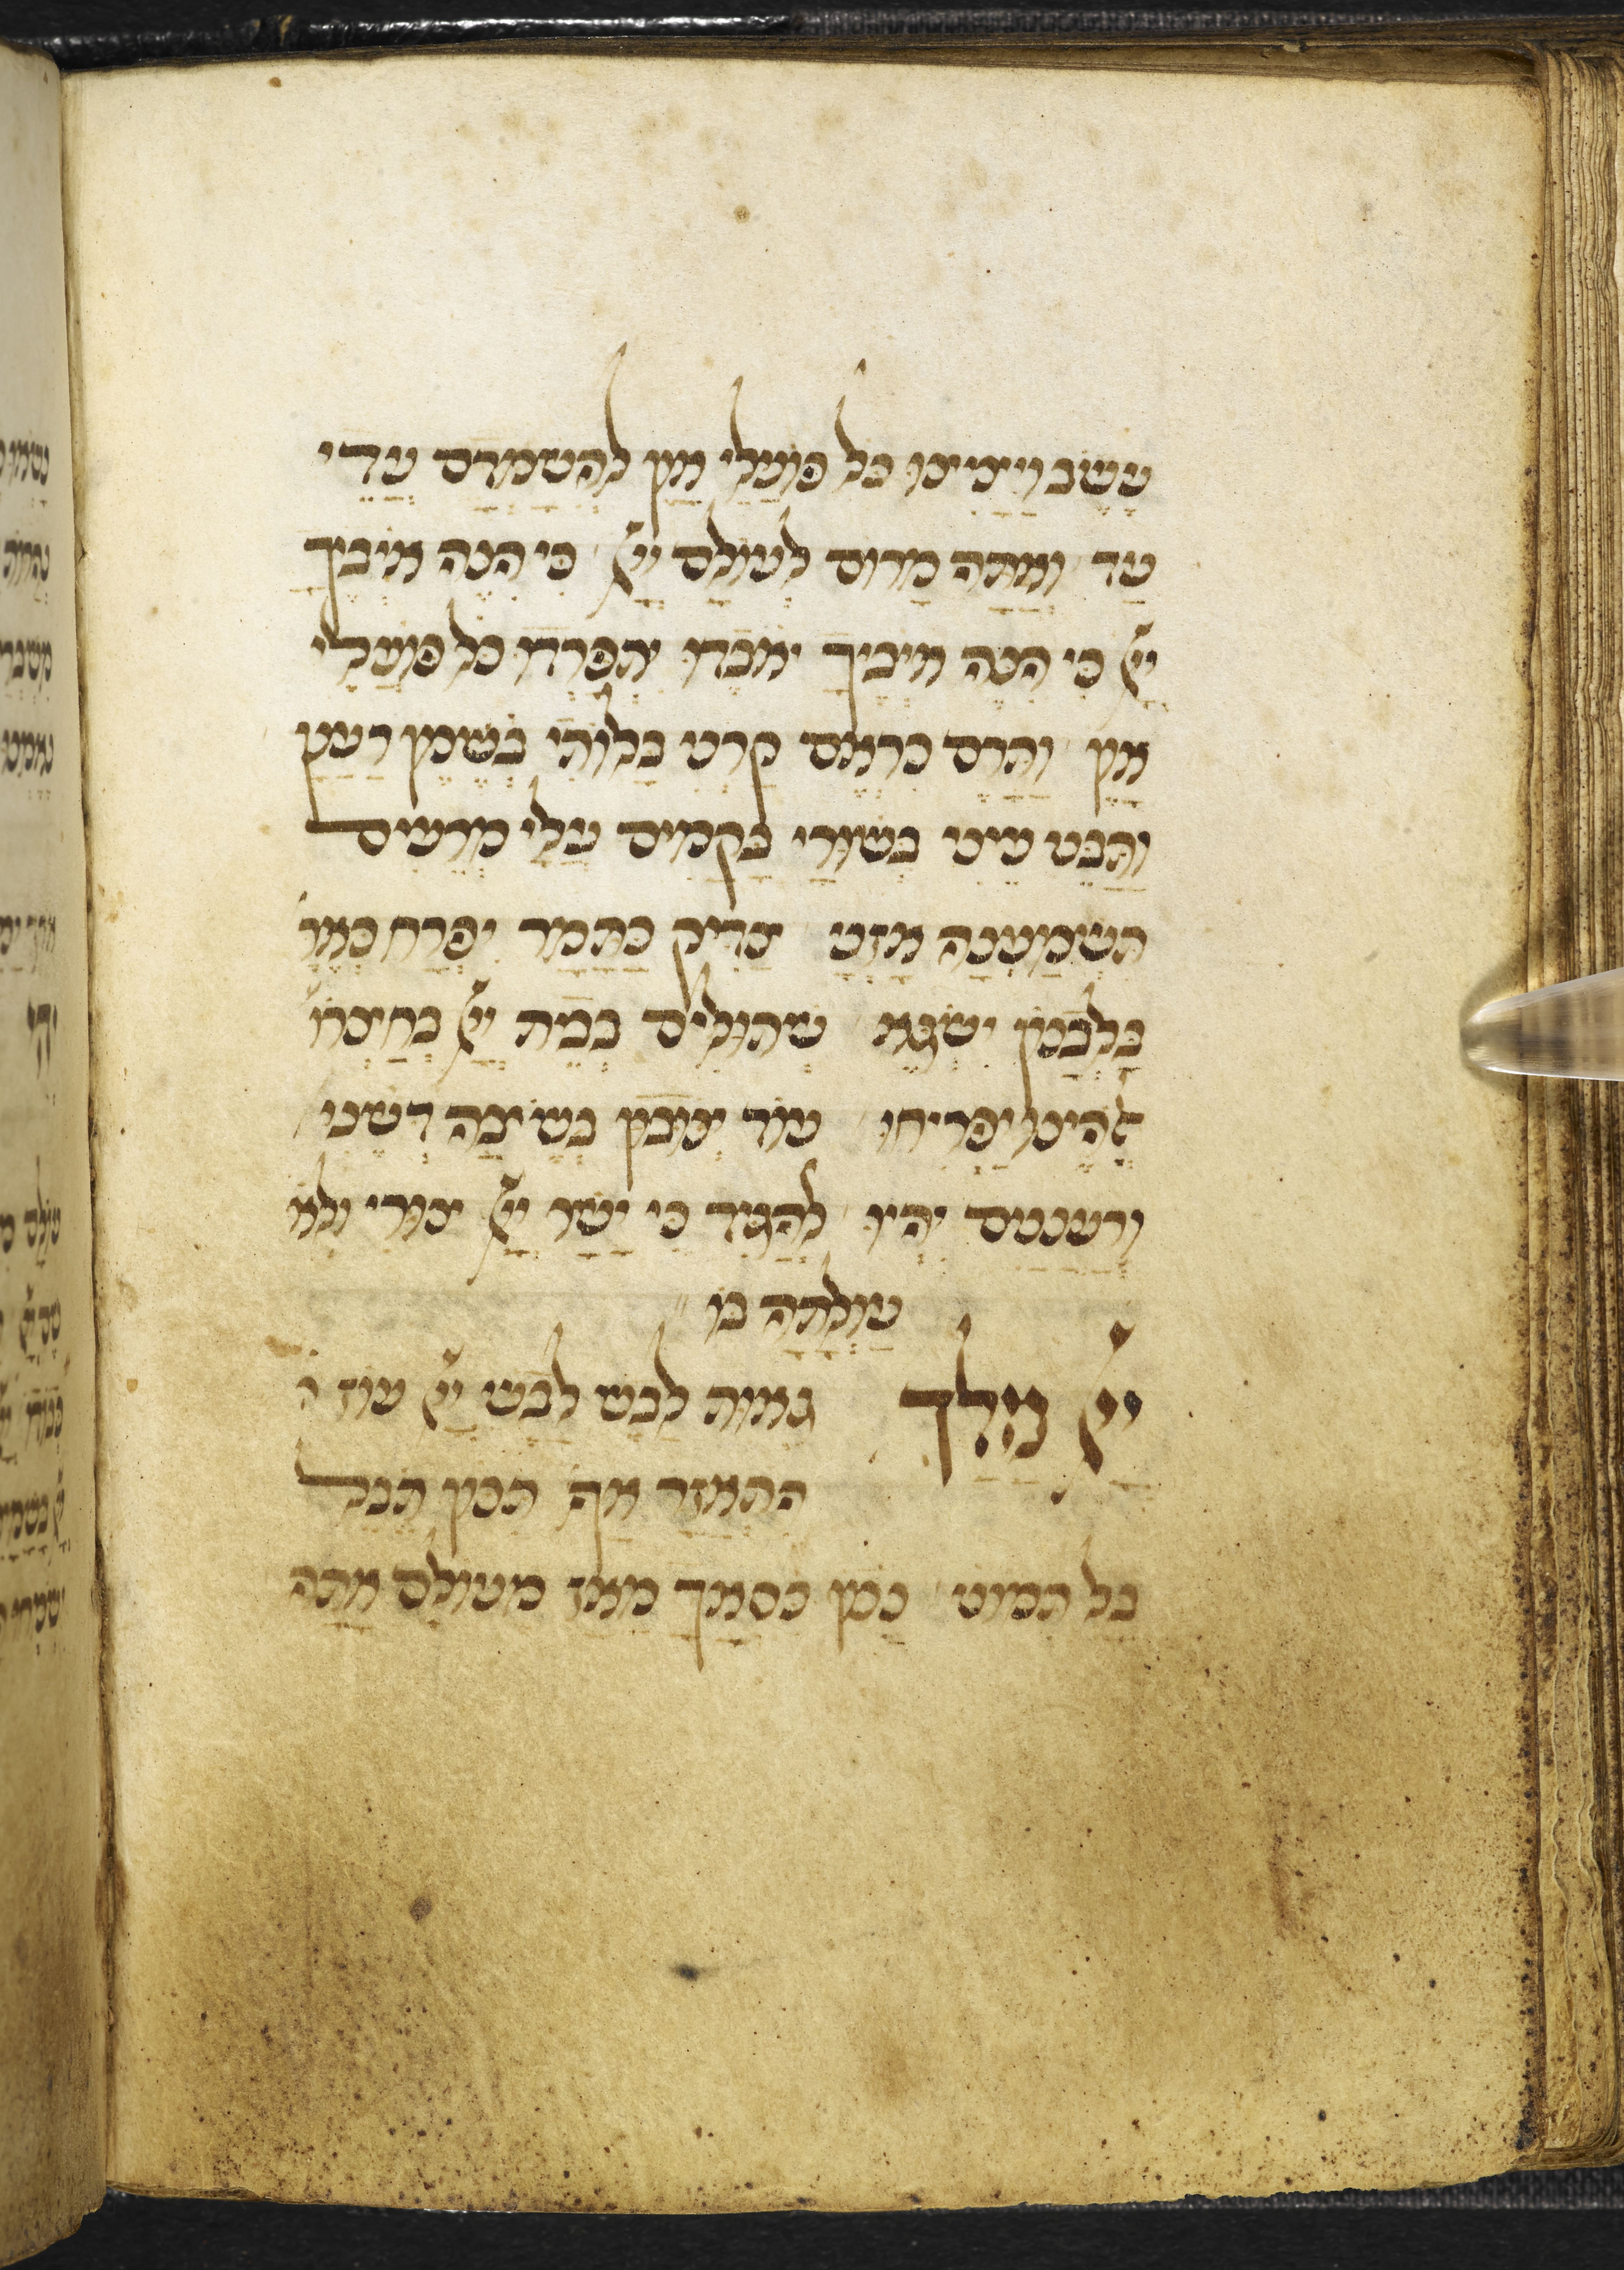 עֵשֶׂב וַיָצִיצוּ כָל פּוֹעֲלֵי אָוֶן לְהִשָמְדָם עֲדֵי
עַד וְאַתָה מָרוֹם לְעוֹלָם יְיָ כִי הִנֵה אֹיְבֶיךָ
יְיָ כִי הִנֵה אֹיְבֶיךָ יֹאבֵדוּ יִתְפָּרְדוּ כָל פּוֹעֲלֵי
אָוֶן וַתָרֶם כִרְאֵם קַרְנִי בַלוֹתִי בְשֶמֶן רַעֲנָן
וַתַבֵט עֵינִי בְשוּרָי בַקָמִים עָלַי מְרֵעִים
תִשְמַעְנָה אָזְנָי צַדִיק כַתָמָר יִפְרָח כְאֶרֶז
בַלְבָנוֹן יִשְׂגֶה שְתוּלִים בְבֵית יְיָ בְחַצְרוֹת
אֱלֹהֵינוּ יַפְרִיחוּ עוֹד יְנוּבוּן בְשֵׂיבָה דְשֵנִי
וְרַעֲנַנִים יִהְיוּ לְהַגִיד כִי יָשָר יְיָ צוּרִי וְלֹא
עַוְלָתָה בוֹ
יְיָ מָלָךְ גֵאוּת לָבֵש לָבֵש יְיָ עוֹז
הִתְאַזָר אַף תִכוֹן תֵבֵל
בַל תִמוֹט נָכוֹן כִסְאֲךָ מֵאָז מֵעוֹלָם אָתָה